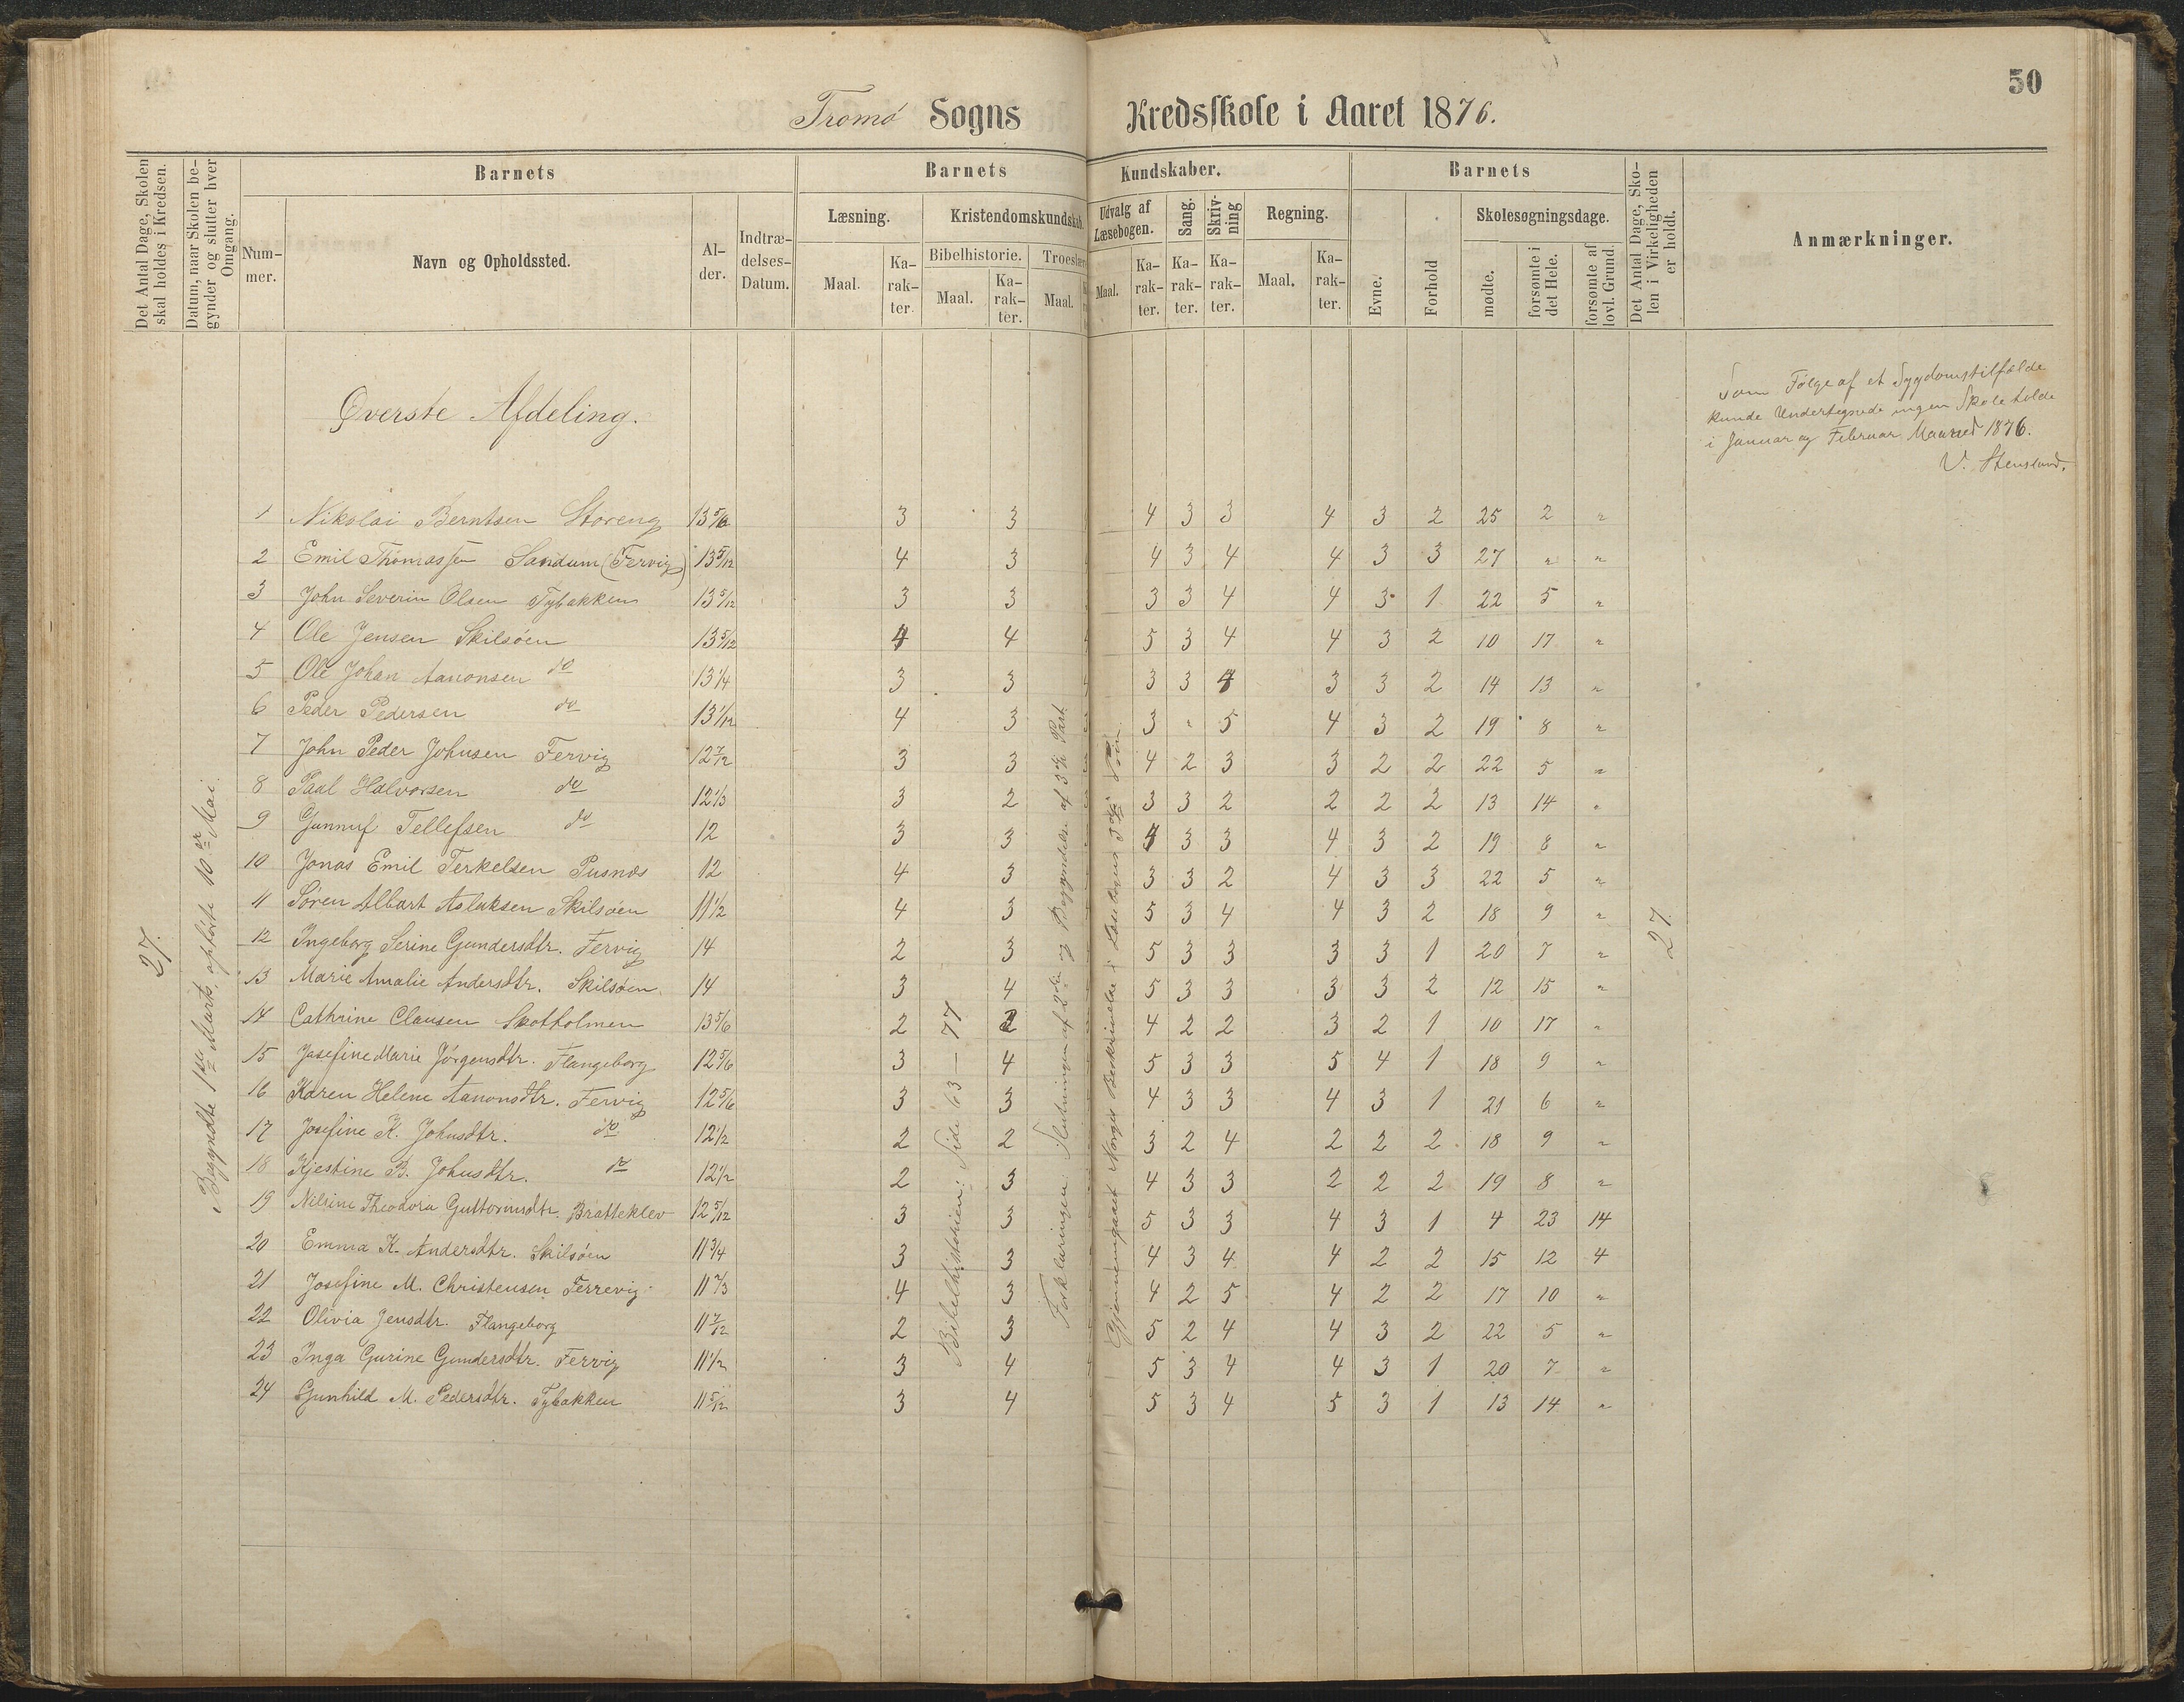 50
Tromø Sogns Kredsskole i Aaret 1876.
Det Antal Dage, Skolen skal holdes i Kredsen.
Datum, naar Skolen begynder og slutter hver Omgang.
Barnets
Barnets Kundskaber.
Barnets
Det Antal Dage, Skolen i Virkeligheden er holdt.
Anmærkninger.
Nummer.
Navn og Opholdssted.
Alder.
Indtrædelses-Datum.
Læsning.
Kristendomskundskab.
Udvalg af Læsebogen.
Sang.
Skrivning
Regning.
Evne.
Forhold
Skolesøgningsdage.
Bibelhistorie.
Troeslære
Maal. Karakter.
Maal. Karakter.
Maal.
Maal. Karakter. Karakter. Karakter.
Maal. Karakter.
mødte.
forsømte i det Hele.
forsømte af lovl. Grund.
Øverste Afdeling.
Som Følge af et Sygdomstilfælde
kunde Undertegnede ingen Skole holde
i Januar og Februar Maaned 1876.
V. Stensund.
27.
Begyndte 1ste Marts, ophørte 10de Mai.
1 Nikolai Berntsen Storeng 13 5/6 3 3 4 3 3 4 3 2 25 2 "
2 Emil Thomassen Sandum (Fervig) 13 5/12 4 3 4 3 4 4 3 3 27 " "
3 John Severin Olsen Tybakken 13 5/12 3 3 3 3 4 4 3 1 22 5 "
4 Ole Jensen Skilsøen 13 5/12 4 4 5 3 4 4 3 2 10 17 "
5 Ole Johan Aanonsen do 13 1/4 3 3 3 3 4 3 3 2 14 13 "
6 Peder Pedersen do 13 1/12 4 3 3 " 5 4 3 2 19 8 "
7 John Peder Johnsen Fervig 12 7/12 3 3 4 2 3 3 2 2 22 5 "
8 Paal Halvorsen do 12 1/3 3 2 3 3 2 2 2 2 13 14 "
9 Gunnuf Tellefsen do 12 3 3 4 3 3 4 3 2 19 8 "
10 Jonas Emil Terkelsen Pusnæs 12 4 3 3 3 2 4 3 3 22 5 "
11 Søren Albart Aslaksen Skilsøen 11 1/2 4 3 5 3 4 4 3 2 18 9 "
12 Ingeborg Serine Gundersdtr. Fervig 14 2 3 5 3 3 3 3 1 20 7 "
13 Marie Amalie Andersdtr. Skilsøen. 14 3 4 5 3 3 3 3 2 12 15 "
14 Cathrine Clausen Skotholmen 13 5/6 2 2 4 2 2 3 2 1 10 17 "
15 Josefine Marie Jørgensdtr. Flangeborg 12 5/6 3 4 5 3 3 5 4 1 18 9 "
16 Karen Helene Aanonsdtr. Fervig 12 5/6 3 3 4 3 3 4 3 1 21 6 "
17 Josefine K. Johnsdtr. do 12 1/2 2 2 3 2 4 2 2 2 18 9 "
18 Kjestine B. Johnsdtr. do 12 1/2 2 3 4 3 3 2 2 2 19 8 "
19 Nilsine Theodora Guttormsdtr. Bratteklev 12 5/12 3 3 5 3 3 4 3 1 4 23 14
20 Emma K. Andersdtr. Skilsøen 11 3/4 3 3 4 3 4 4 2 2 15 12 4
21 Josefine M. Christensen Ferrevig 11 2/3 4 3 4 2 5 4 2 2 17 10 "
22 Olivia Jensdtr. Flangeborg 11 7/12 2 3 5 2 4 4 3 2 22 5 "
23 Inga Gurine Gundersdtr. Fervig 11 1/2 3 4 5 3 4 4 3 1 20 7 "
24 Gunhild M. Pedersdtr. Tybakken 11 5/12 3 4 5 3 4 5 3 1 13 14 "
Bibelhistorien: Side 63 — 77
Forklaringen: Slutningen af 2den og Begyndelse af 3die Part.
Gjennemgaaet Norges Beskrivelse i Læsebogens 3die
27.